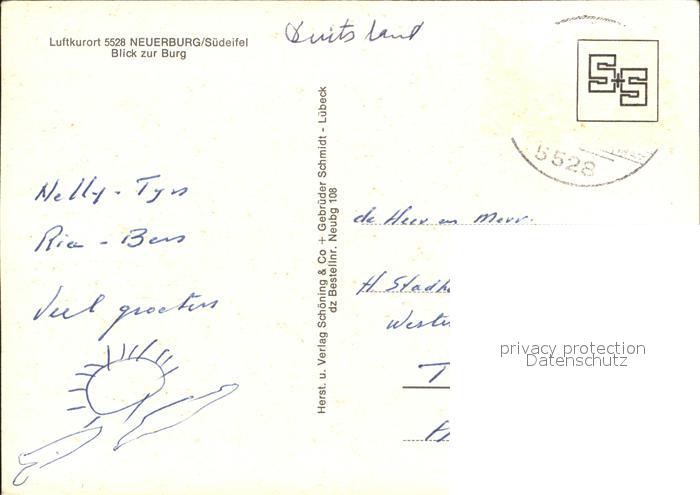 Luftkurort 5528 NEUERBURG/Südeifel
Blick zur Burg
Duitsland
S+S
5528
Nelly - Tys
Ria - Bers
Veel groeten
Herst. u. Verlag Schöning & Co + Gebrüder Schmidt - Lübeck
dz Bestellnr. Neubg 108
de Heer en Mevr.
H Stadh
Weste
T
privacy protection
Datenschutz